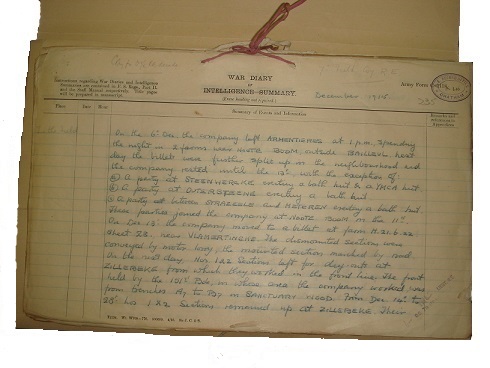 WAR DIARY
or
INTELLIGENCE SUMMARY.
(Erase heading not required.)
Army Form C. 2118.
Instructions regarding War Diaries and Intelligence
Summaries are contained in F. S. Regs., Part II.
and the Staff Manual respectively. Title pages
will be prepared in manuscript.
December 1915
Place
Date
Hour
Summary of Events and Information
Remarks and references to Appendices
On the 6th Dec the company left ARMENTIERES at 1 p.m. spending
the night in 2 farms near NOOTE BOOM, outside BAILLEUL. Next
day the billets were further split up in the neighbourhood and
the company rested until the 13th with the exception of:
A party at STEENWERCK erecting a bath hut &
A party at OUTERSTEENE erecting a bath hut
A party at between STRAZEELE and METEREN erecting a bath hut.
These parties joined the company at NOOTE BOOM on the 11th.
On Dec 13th the company moved to a billet at farm H.21.b.22.
Sheet 28. near VLAMERTINGHE. The dismounted sections were
conveyed by motor lorry, the mounted section marched by road.
On the next day Nos 1 & 2 Sections left for dug-outs at
ZILLEBEKE from which they worked in the front line. The front
held by the Bde, in whose area the company worked was
from trenches A7 to B7 in SANCTUARY WOOD. From Dec 14th to
28th No 1 & 2 Sections remained up at ZILLEBEKE. Their